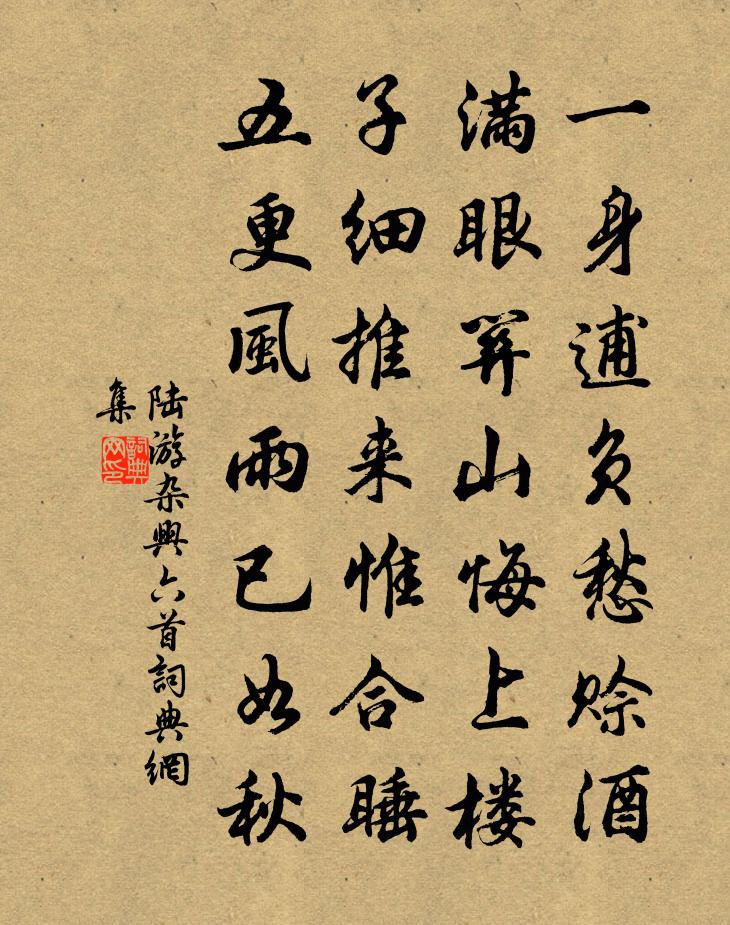 一身逋负愁赊酒
滿眼關山悔上楼
子细推来惟合睡
五更風雨已如秋
陆游杂興六首詞典網
集
詞典网印